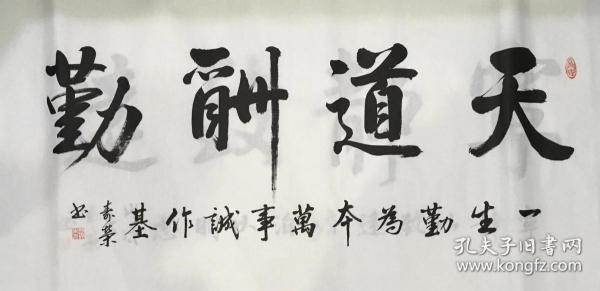 天道酬勤
一生勤為本萬事誠作基
壽榮書
孔夫子旧书网
www.kongfz.com